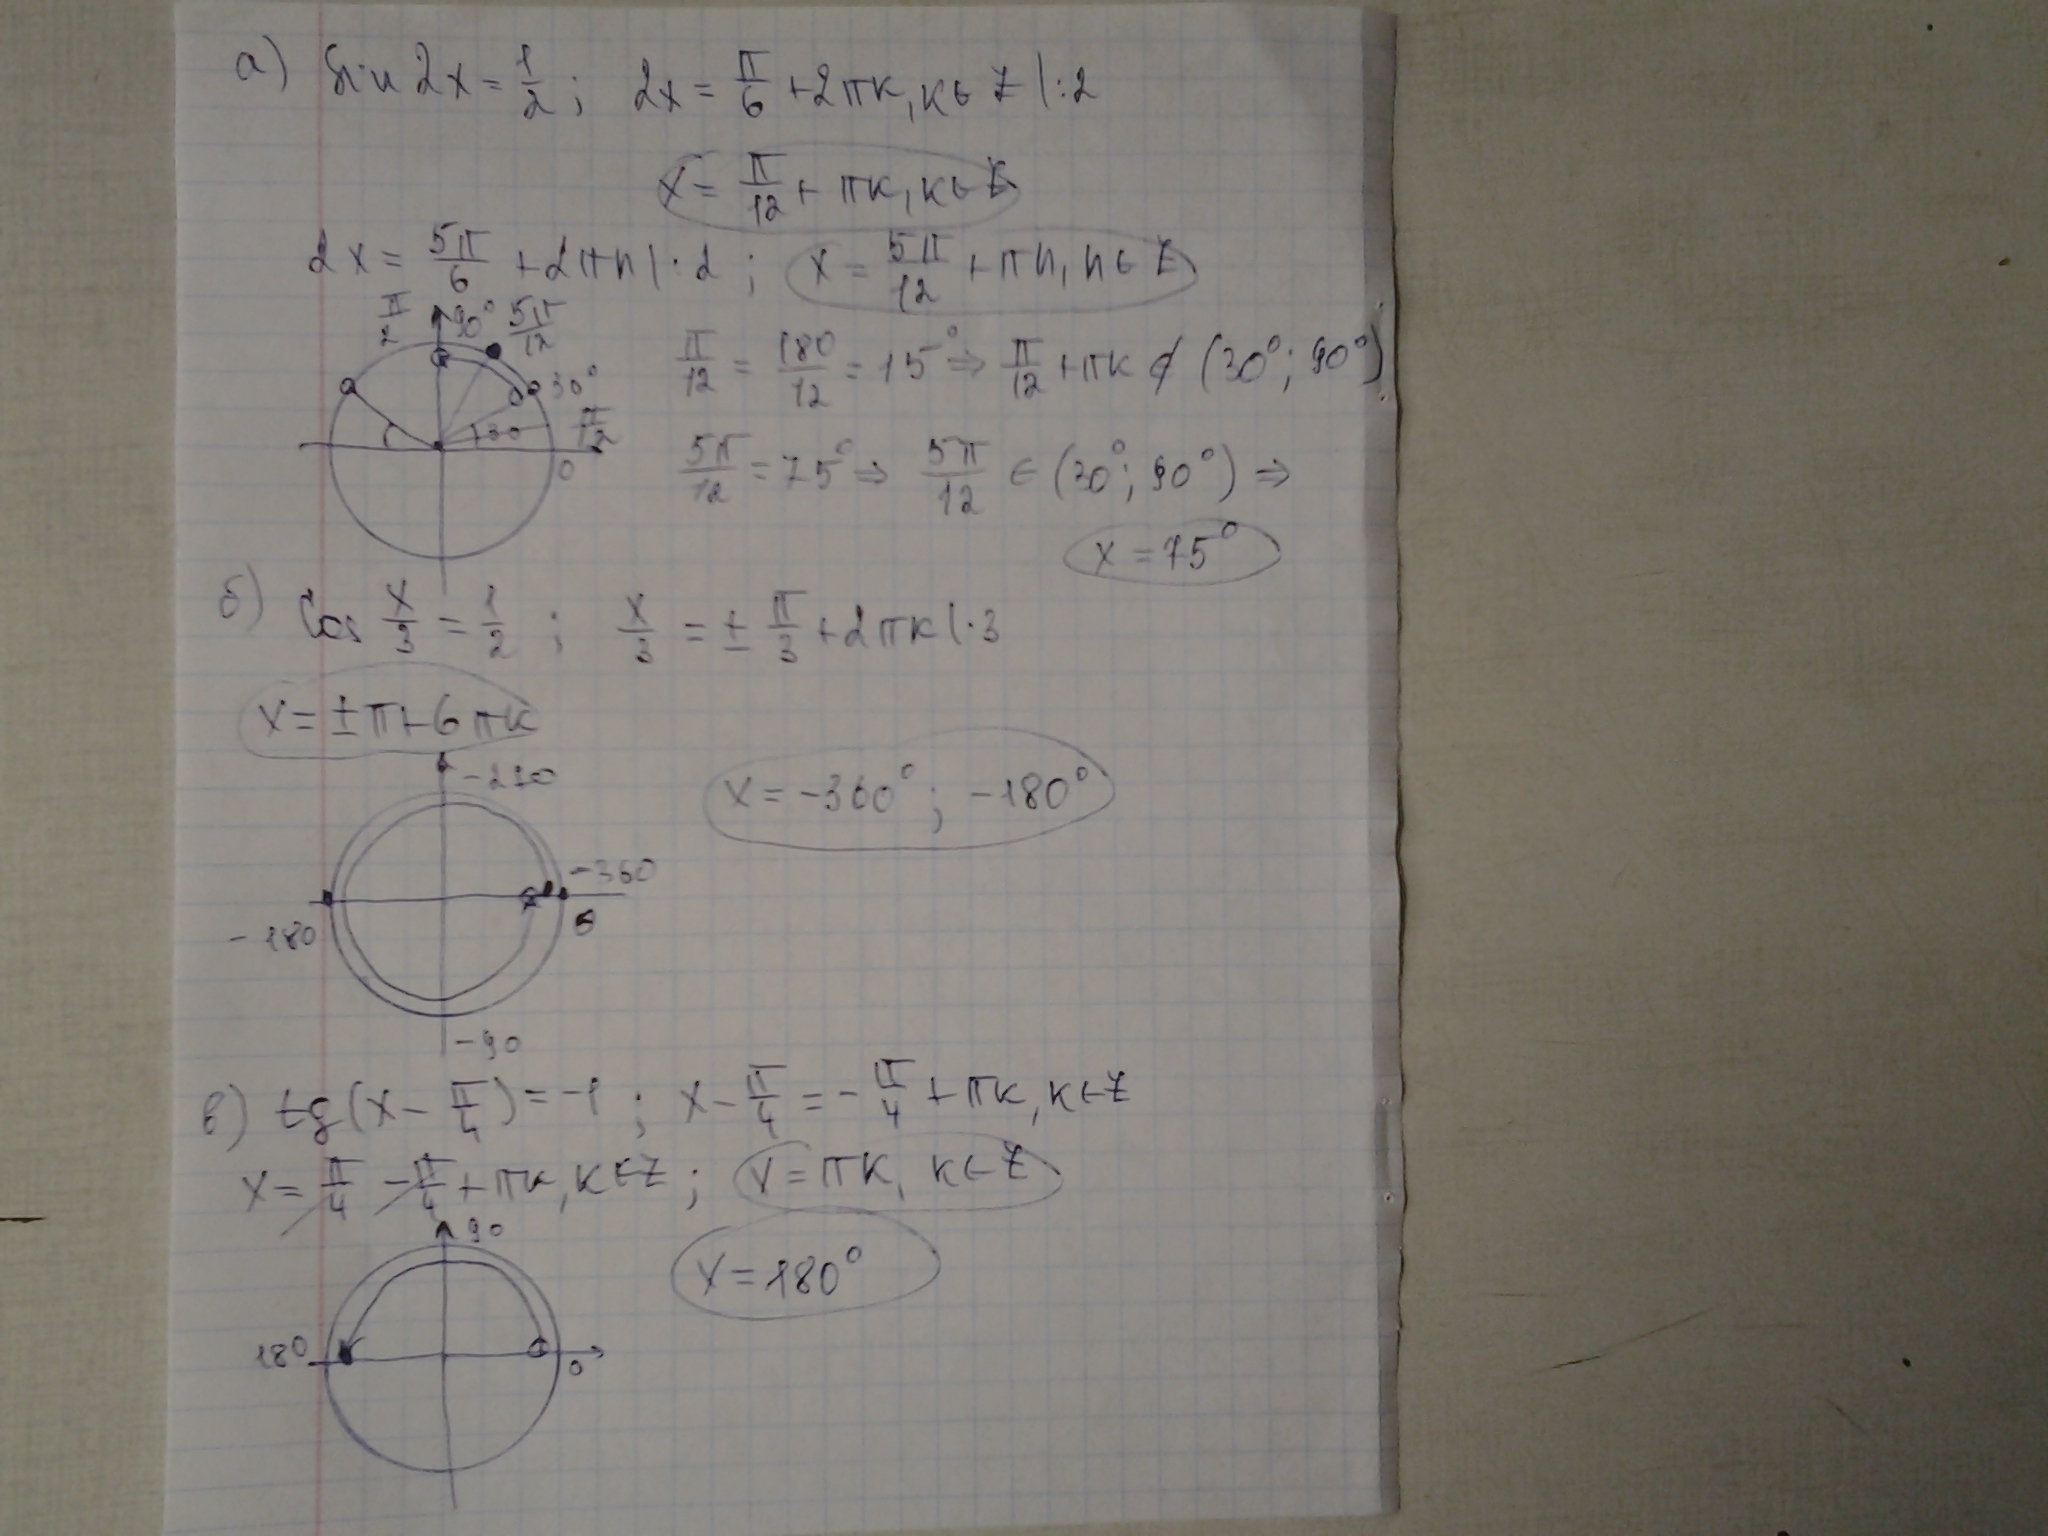 а) Sin 2x = 1/2 ; 2x = π/6 + 2πк, к ∈ Z |:2
x = π/12 + πк, к ∈ Z
2x = 5π/6 + 2πn |·2 ; x = 5π/12 + πn, n ∈ Z
π/2 90° 5π/12
30°
30
π/12
0
π/12 = 180/12 = 15° ⇒ π/12 + πк ∉ (30°; 90°)
5π/12 = 75° ⇒ 5π/12 ∈ (30°; 90°) ⇒
x = 75°
б) Cos x/3 = 1/2 ; x/3 = ± π/3 + 2πк |·3
x = ±π + 6πк
x = -360° ; -180°
-360
-180
-90
в) tg(x - π/4) = -1 ; x - π/4 = -π/4 + πк, к ∈ Z
x = π/4 - π/4 + πк, к ∈ Z ; x = πк, к ∈ Z
90
x = 180°
180
0